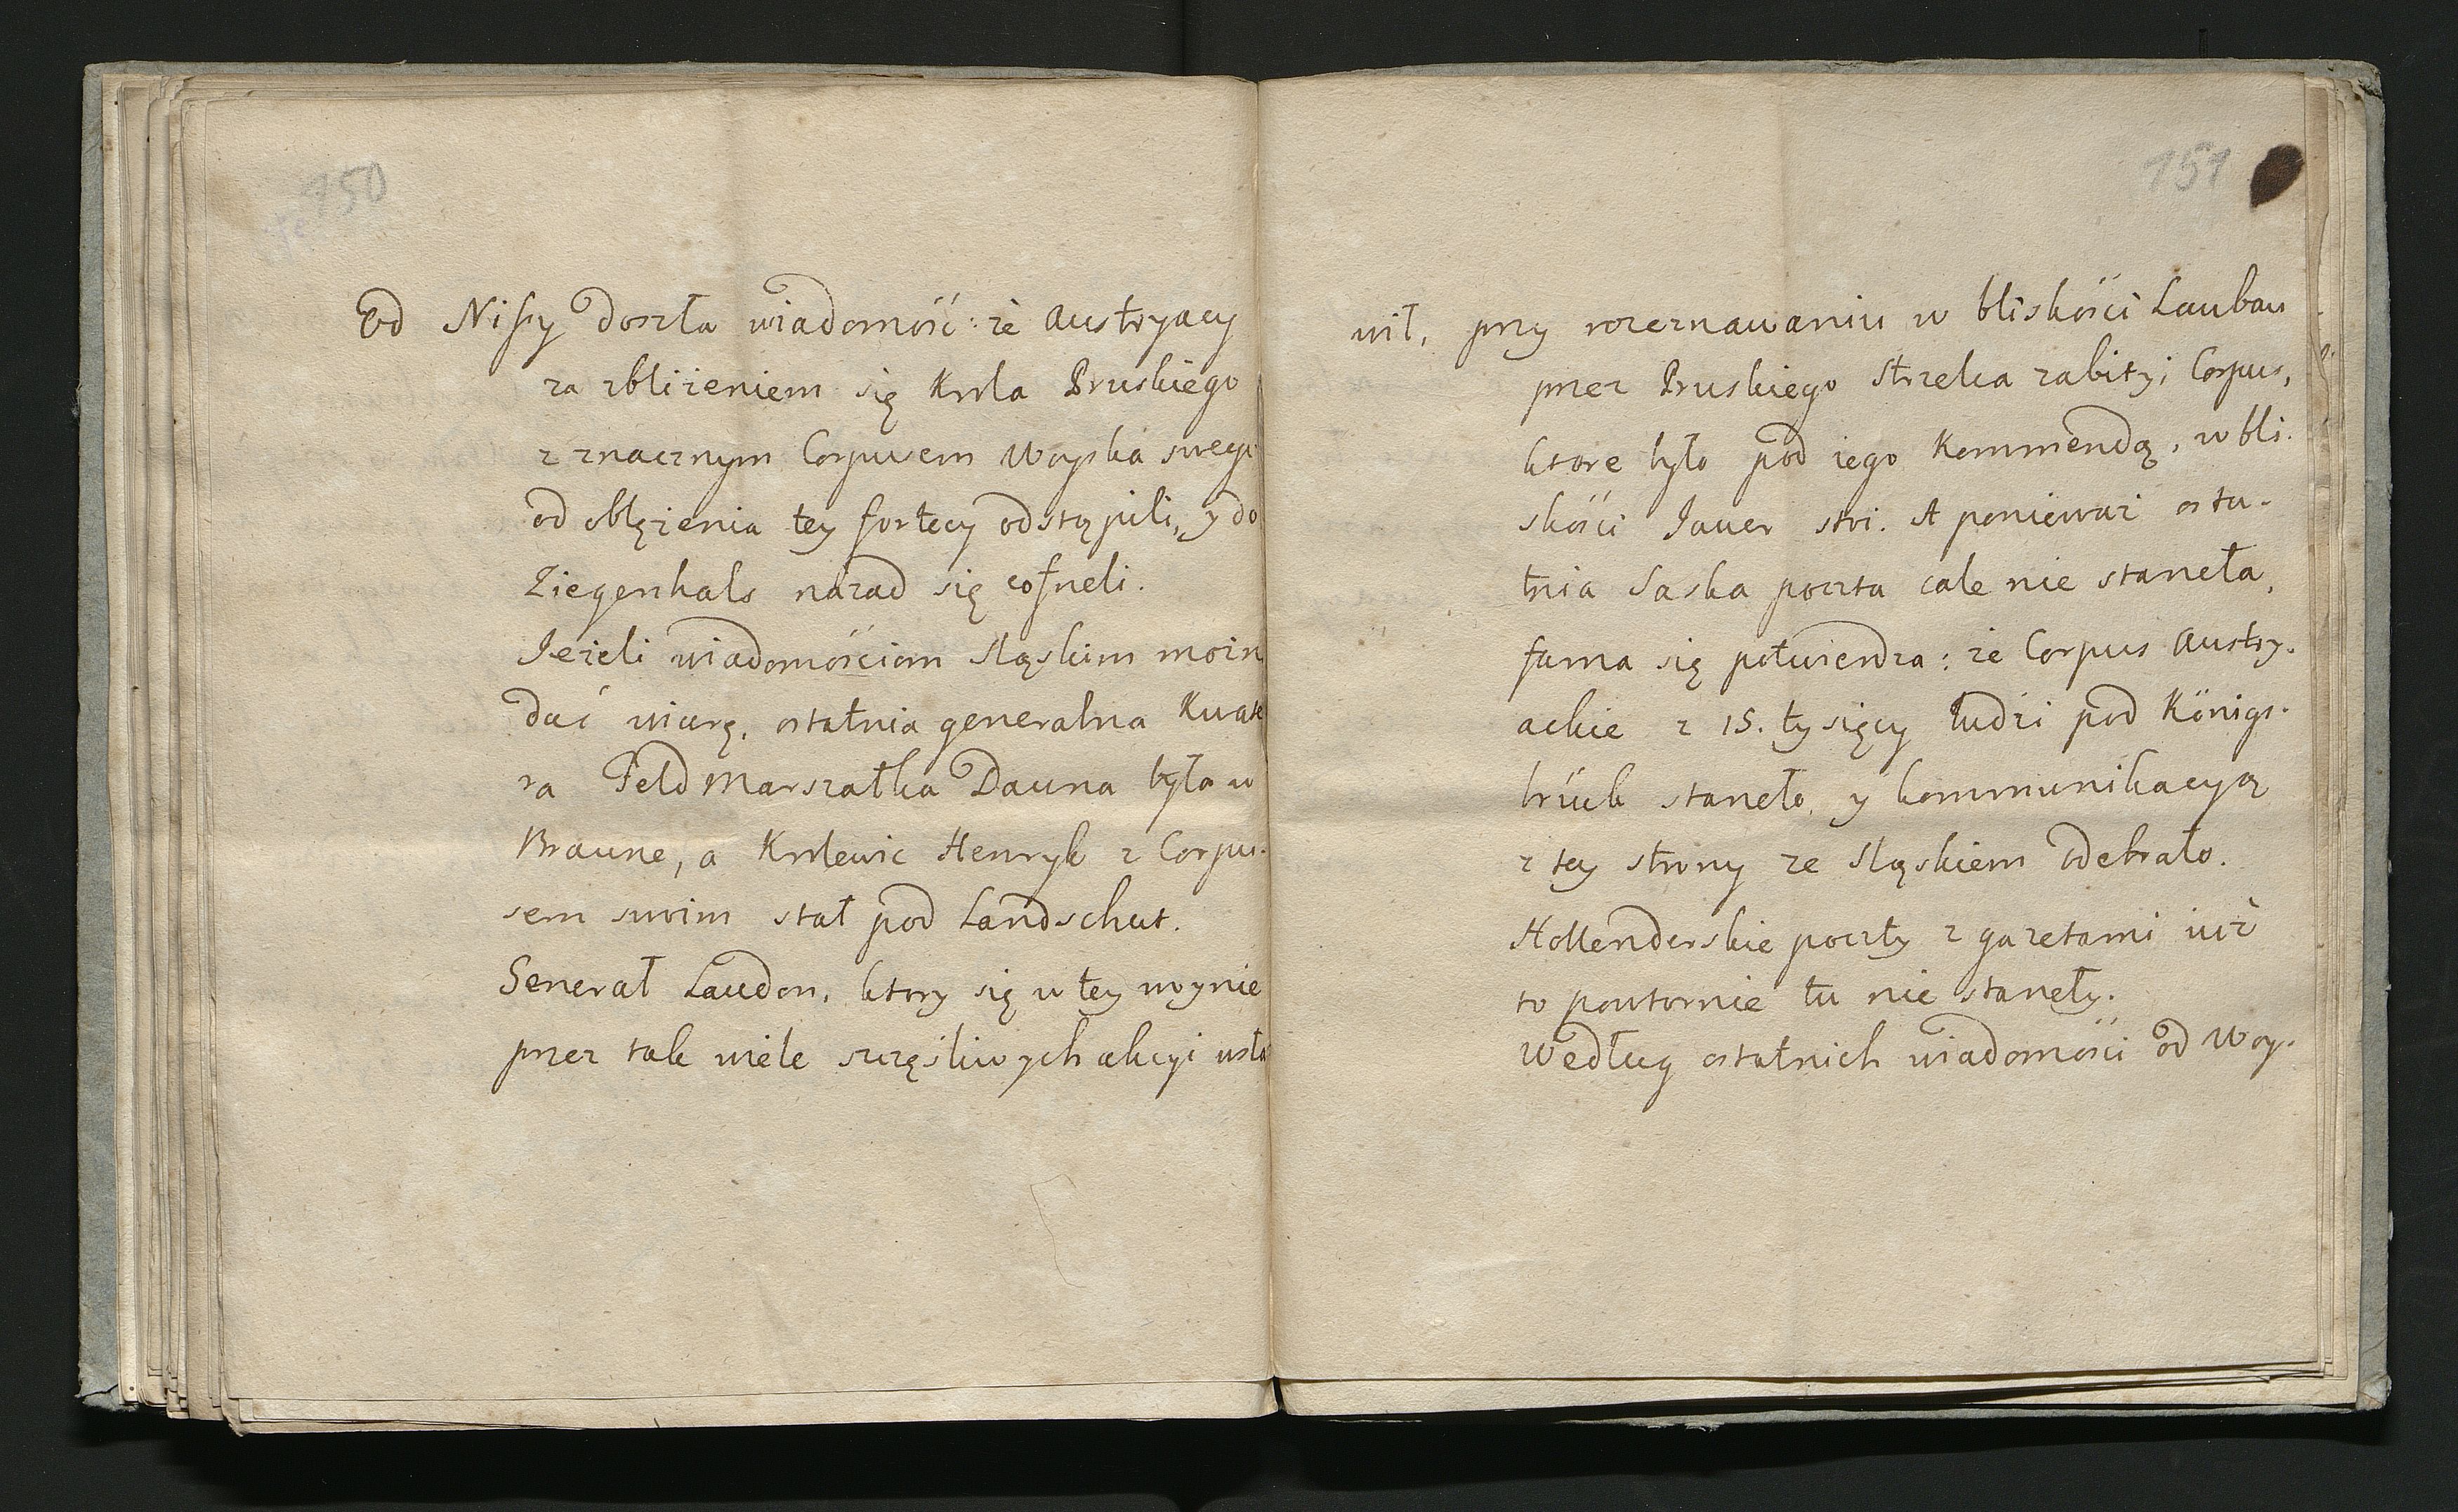 150
Od Nissy doszła wiadomość: że Austryacy
za zbliżeniem się Krola Pruskiego
z znacznym Corpusem Woyska swego
od oblężenia tey fortecy odstąpili, y do
Ziegenhals nazad się cofneli.
Jeżeli wiadomościom Sląskim możn
dać wiarę, ostatnia generalna Kwate
ra Feld Marszałka Dauna była w
Braune, a Krolewic Henryk z Corpu-
sem swoim stał pod Landschut.
General Laudon, ktory się w tey woynie
przez tak wiele szczęśliwych akcyi wsła
151
wił, przy rozeznawaniu w bliskości Lauban
przez Pruskiego Strzelca zabity; Corpus,
ktore było pod iego Kommendą, w bli-
skości Jauer stoi. A ponieważ osta-
tnia Saska poczta cale nie staneła,
fama się potwierdza: że Corpus Austry-
ackie z 15. tysięcy ludzi pod Königs-
brück staneło, y kommunikacyą
z tey strony ze Sląskiem odebrało.
Hollenderskie poczty z gazetami iuż
to powtornie tu nie staneły.
Według ostatnich wiadomości od Woy-